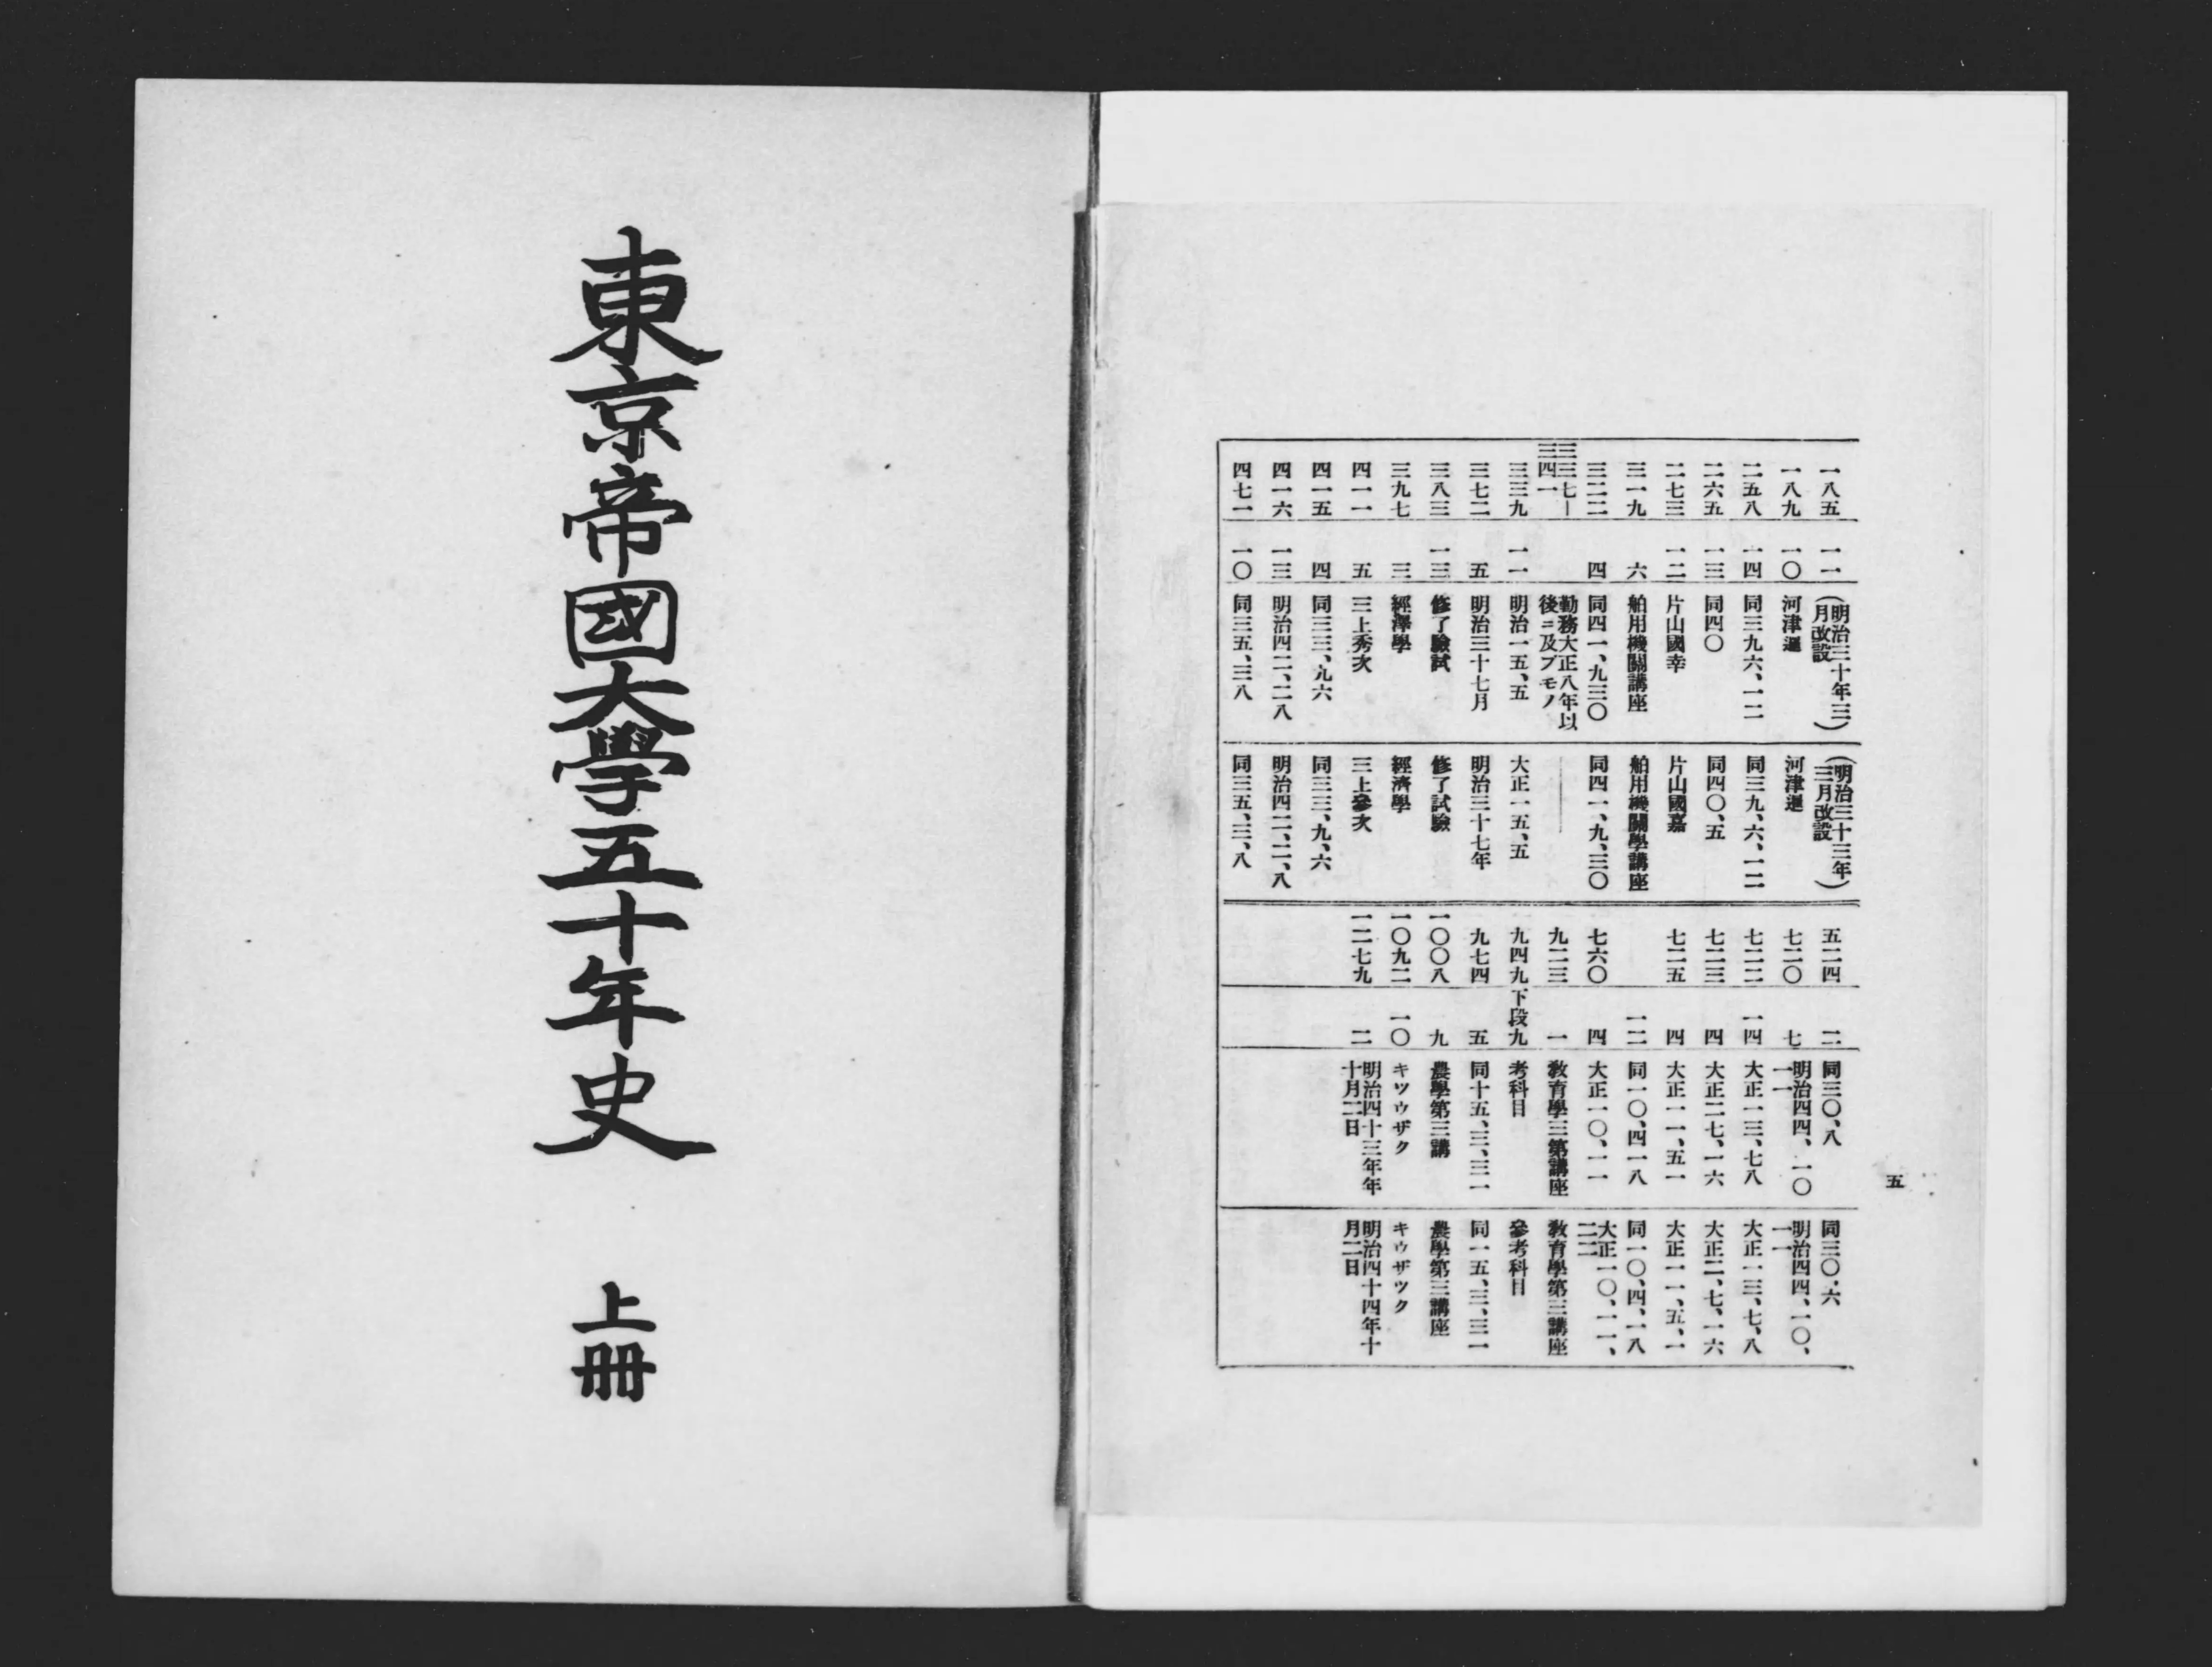 五
一八五 一一 (明治三十年三月改設) (明治三十三年三月改設)
一八九 一〇 河津 河津暹
二五八 一四 同三九六、一二 同三九、六、一二
二六五 一三 同四〇 同四〇、五
二七三 一二 片山國幸 片山國嘉
三一九 六 舶用機關講座 舶用機關學講座
三二二 四 同四一、九三〇 同四一、九、三〇
三三七―三四一 勤務大正八年以後ニ及ブモノ ――
三三九 一一 明治一五、五 大正一五、五
三七二 五 明治三十七月 明治三十七年
三八三 一三 修了驗試 修了試驗
三九七 三 經澤學 經濟學
四一一 五 三上秀次 三上參次
四一五 四 同三三、九六 同三三、九、六
四一六 一三 明治四二、二八 明治四二、二、八
四七一 一〇 同三五、三八 同三五、三、八
五二四 二 同三〇、八 同三〇、六
七二〇 七 明治四四、一〇一一 明治四四、一〇、一一
七二二 一四 大正一三、七八 大正一三、七、八
七二三 四 大正二七、一六 大正二、七、一六
七二五 四 大正一一、五一 大正一一、五、一
一二 同一〇、四一八 同一〇、四、一八
七六〇 四 大正一〇、一一 大正一〇、一一、二二
九二三 一 教育學三第講座 教育學第三講座
九四九 下段九 考科目 參考科目
九七四 五 同十五、三、三一 同一五、三、三一
一〇〇八 九 農學第三講 農學第三講座
一〇九二 一〇 キツウザク キウザツク
一二七九 二 明治四十三年年十月二日 明治四十四年十月二日
東京帝國大學五十年史 上冊